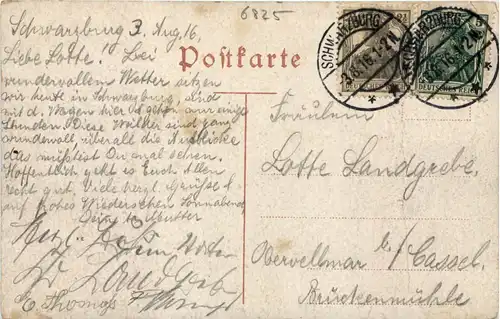 6825
Schwarzburg 3. Aug. 16.
Liebe Lotte! Bei
wundervollem Wetter sitzen
wir heute in Schwarzburg, sind
mit d. Wagen hier schon
Stunden. Diese Wälder sind ganz
wundervoll überall die Ausblicke
das müßtest Du mal sehen.
Hoffentlich geht es Euch Allen
recht gut. Viele herzl. Grüße &
auf frohes Wiedersehen Sonnabend
Deine Mutter
Herzl.
Landgrebe
Thomas
Postkarte
SCHWARZBURG
3.8.16.1-2N.
DEUTSCHES REICH
SCHWARZBURG
3.8.16.1-2N.
DEUTSCHES REICH
Fräulein
Lotte Landgrebe.
Obervellmar b/ Cassel.
Brückenmühle